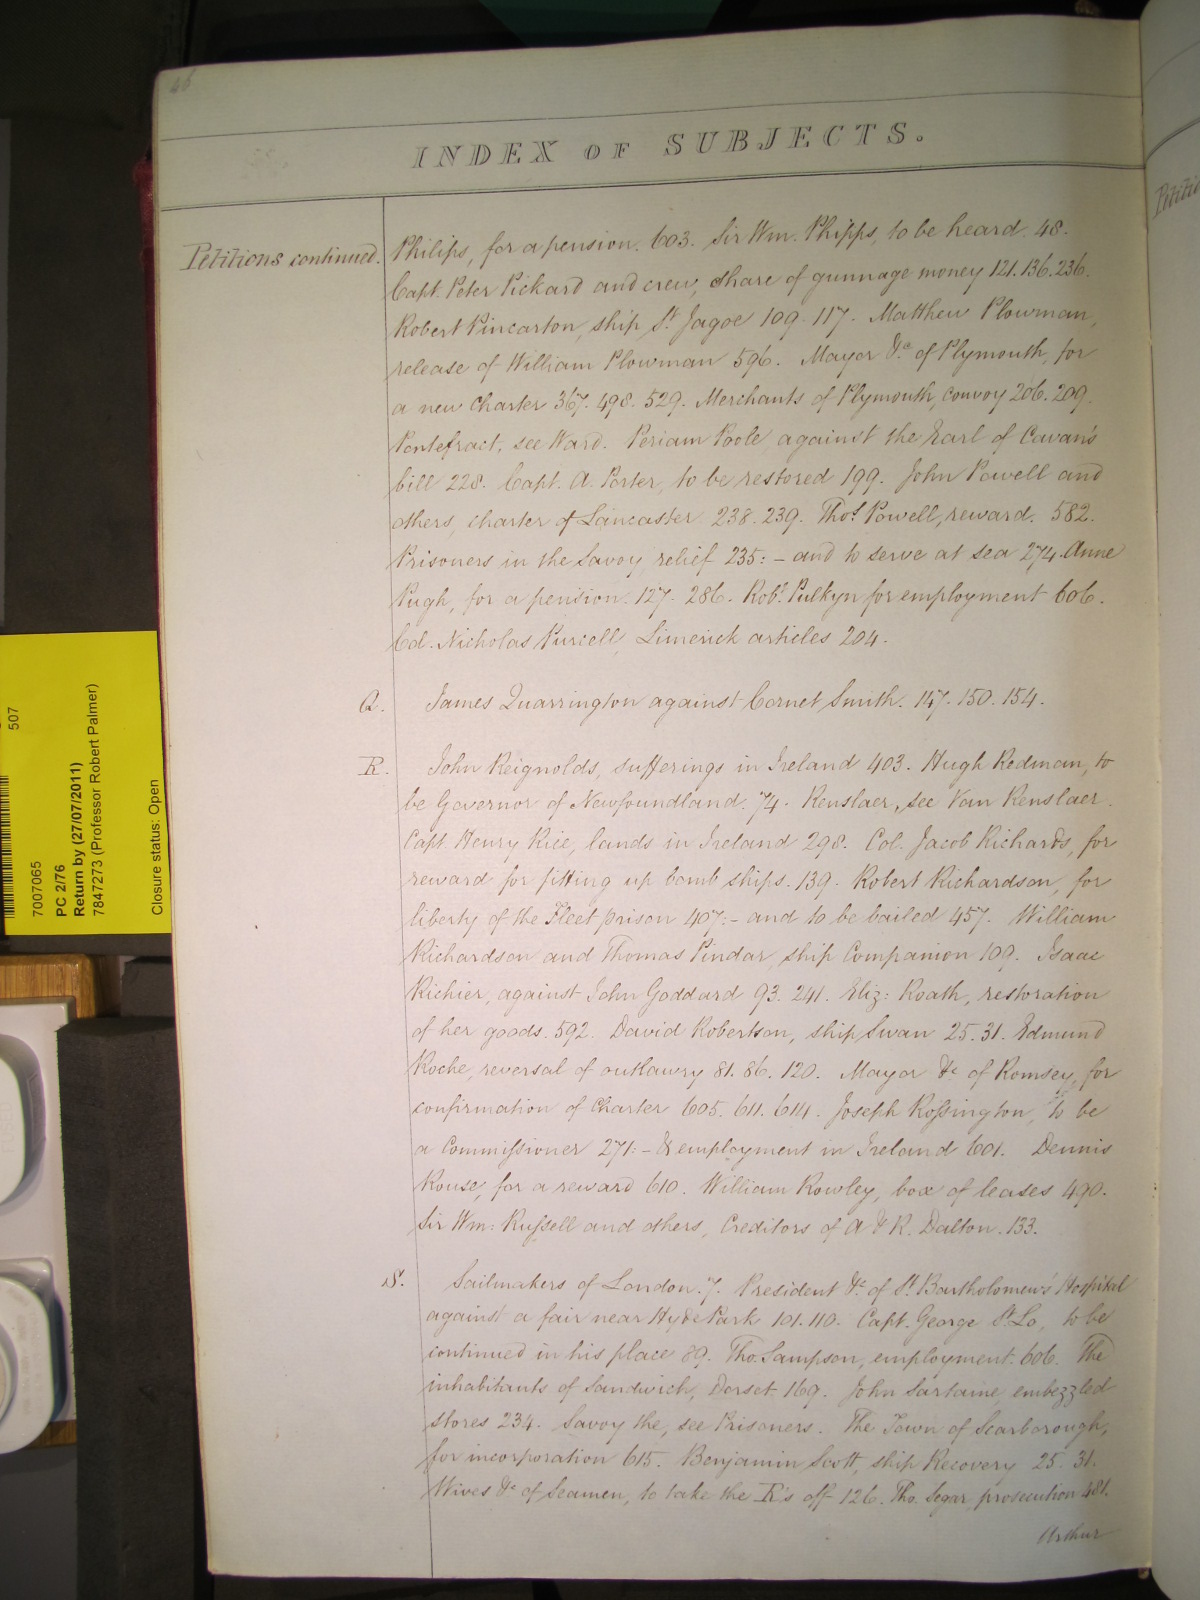 46
INDEX OF SUBJECTS.
Petitions continued.
Philips, for a pension. 603. Sir Wm. Phipps, to be heard. 48.
Capt. Peter Pickard and crew, share of gunnage money 121. 136. 236.
Robert Pincarton, ship St. Jagoe 109. 117. Matthew Plowman,
release of William Plowman 596. Mayor &c. of Plymouth, for
a new Charter 367. 498. 529. Merchants of Plymouth, convoy 206. 209.
Pontefract, see Ward. Periam Poole, against the Earl of Cavan's
bill 228. Capt. A. Porter, to be restored 199. John Powell and
others, charter of Lancaster 238. 239. Thos. Powell, reward. 582.
Prisoners in the Savoy, relief 235: - and to serve at sea 274. Anne
Pugh, for a pension. 127. 286. Robt. Pulkyn for employment 606.
Col. Nicholas Purcell, Limerick articles 204.
Q. James Quarrington against Cornet Smith. 147. 150. 154.
R. John Reignolds, sufferings in Ireland 403. Hugh Redman, to
be Governor of Newfoundland. 74. Renslaer, see Van Renslaer.
Capt. Henry Rice, lands in Ireland 298. Col. Jacob Richards, for
reward for fitting up bomb ships. 139. Robert Richardson, for
liberty of the Fleet prison 407: - and to be bailed 457. William
Richardson and Thomas Pindar, ship Companion 109. Isaac
Richier, against John Goddard 93. 241. Eliz: Roath, restoration
of her goods. 592. David Robertson, ship Swan 25. 31. Edmund
Roche, reversal of outlawry 81. 86. 120. Mayor &c of Romsey, for
confirmation of Charter 605. 611. 614. Joseph Rossington, to be
a Commissioner 271: - & employment in Ireland 601. Dennis
Rouse, for a reward 610. William Rowley, box of leases 490.
Sir Wm: Russell and others, Creditors of A & R. Dalton. 133.
S. Sailmakers of London. 7. President &c of St. Bartholomew's Hospital
against a fair near Hyde Park 101. 110. Capt. George St. Lo, to be
continued in his place 89. Tho. Sampson, employment. 606. The
inhabitants of Sandwich, Dorset 169. John Sartaine, embezzled
stores 234. Savoy the, see Prisoners. The Town of Scarborough,
for incorporation 615. Benjamin Scott, ship Recovery 25. 31.
Wives &c of Seamen, to take the R's off 126. Tho. Segar, prosecution 481.
Arthur
507
7007065
PC 2/76
Return by (27/07/2011)
7847273 (Professor Robert Palmer)
Closure status: Open